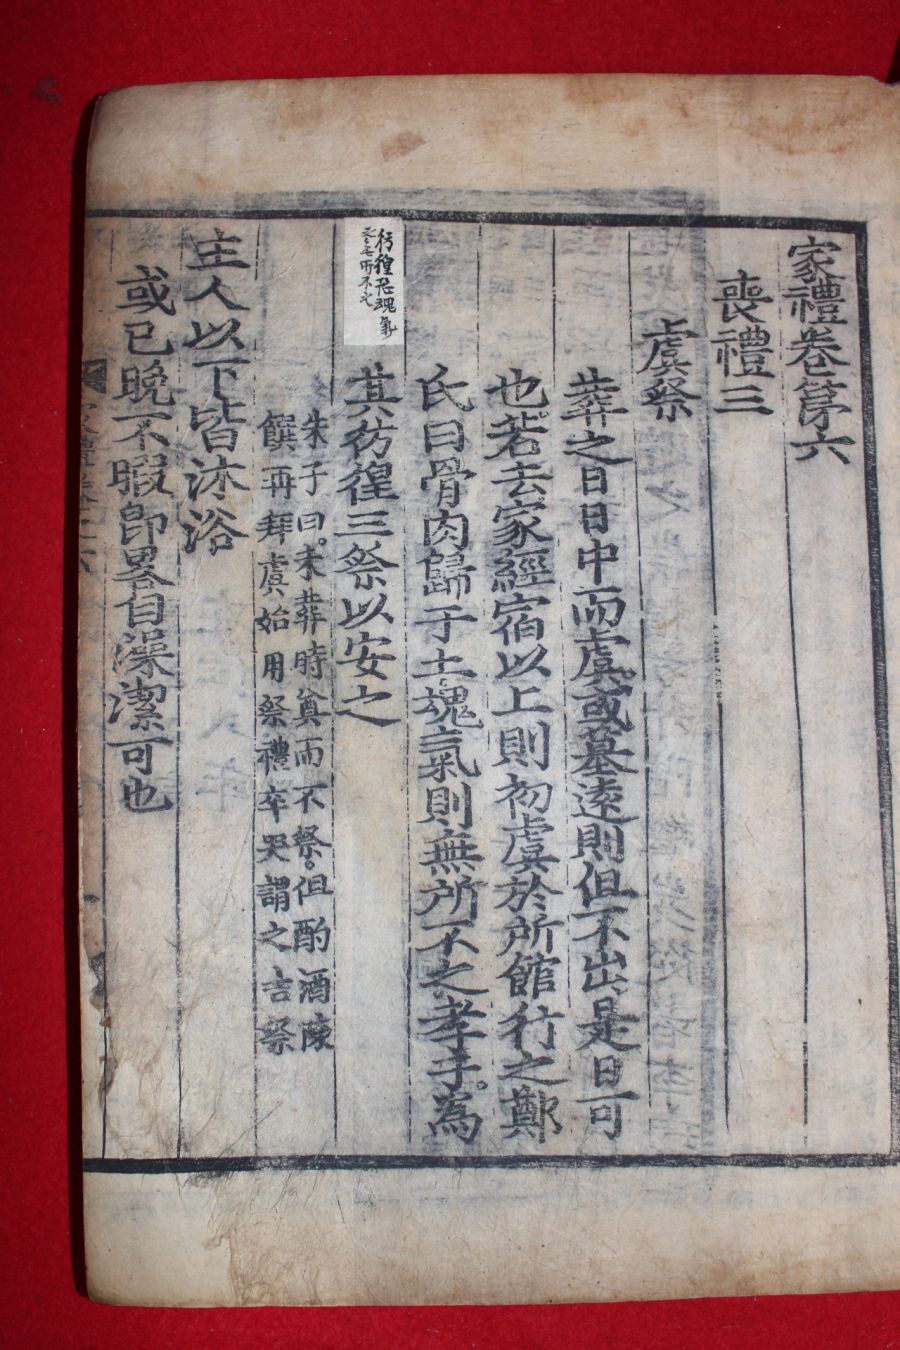 家禮卷第六
喪禮三
虞祭
葬之日日中而虞或墓遠則但不出是日可
也若去家經宿以上則初虞於所館行之鄭
氏曰骨肉歸于土魂氣則無所不之孝子爲
其彷徨三祭以安之
朱子曰未葬時奠而不祭但酌酒陳
饌再拜虞始用祭禮卒哭謂之吉祭
主人以下皆沐浴
或已晩不暇卽畧自澡潔可也
彷徨恐魂氣